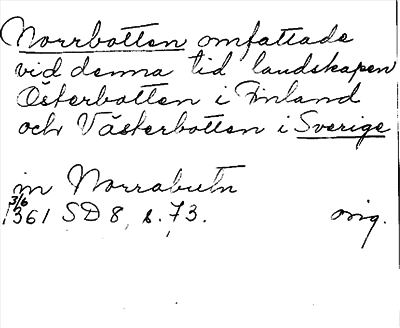 Norrbotten omfattade
vid denna tid landskapen
Österbotten i Finland
och Västerbotten i Sverige
in Norrabutn
3/6
1361 SD 8, s. 73. orig.